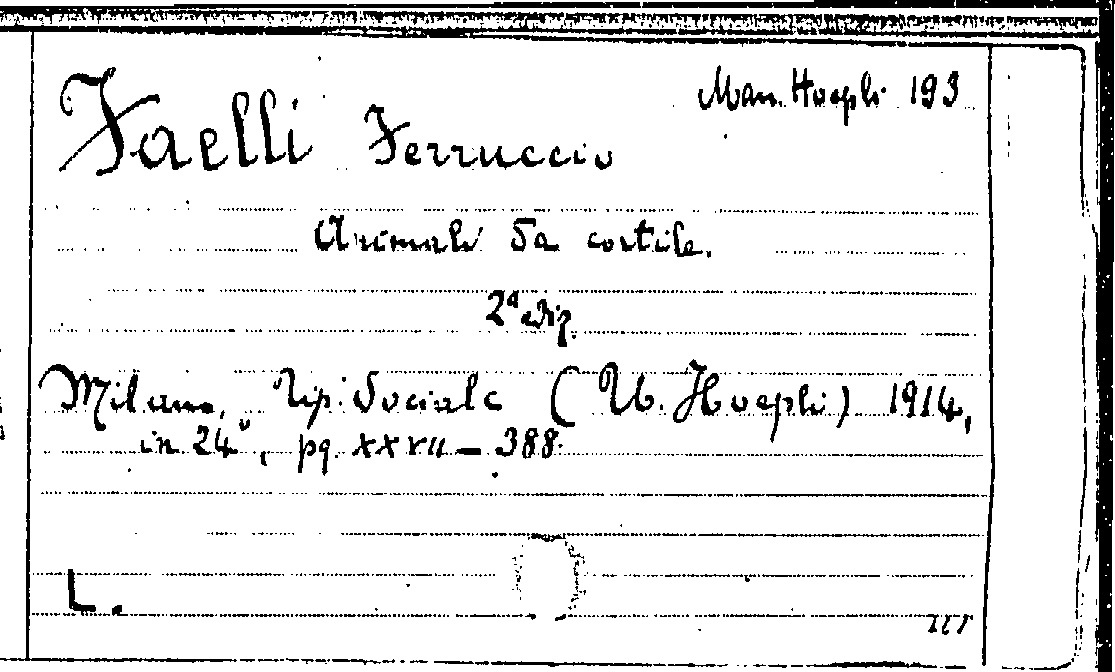 Man. Hoepli 193
Faelli Ferruccio
Animali da cortile.
2ª ediz.
Milano, Tip. Sociale (U. Hoepli) 1914,
in 24°, pg. XXVII – 388.
L.